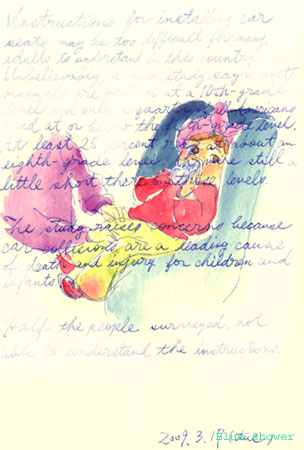 Instructions for installing car
seats may be too difficult for many
adults to understand in this country.
Unbelievably, a new study says most
manuals are written at a 10th-grade
level and only a quarter
read at or below the level.
At least 25 percent read at about an
eighth-grade level. still a
little short there on those levels.
The study raises concerns because
car collisions are a leading cause
of death and injury for children and
infants
Half the people surveyed, not
able to understand the instructions.
2009. 3. 17 (tue)
Blue Shower